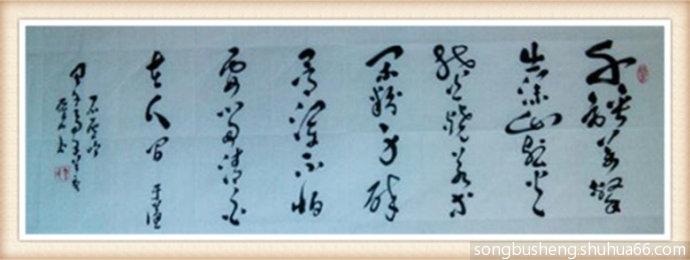 千锤万
出深山烈火
焚烧若等
闲粉身碎
骨浑不怕
要留清白
在人间 于谦
石灰吟
甲午
songbusheng.shuhua66.com